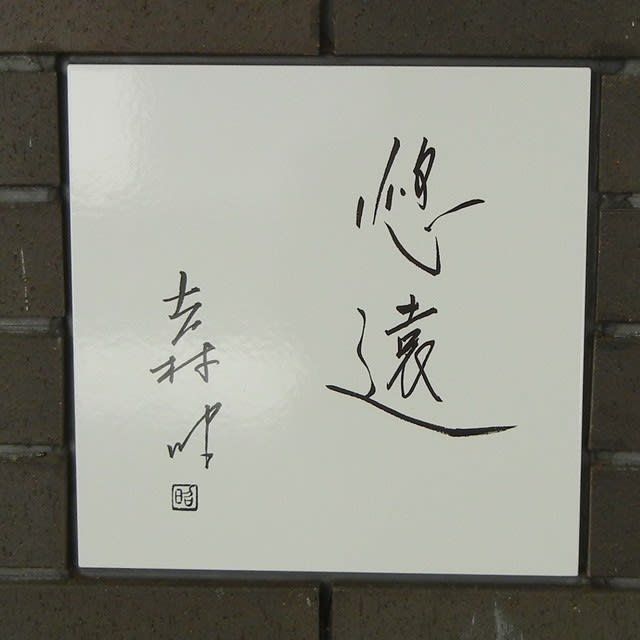 悠遠
吉村昭
昭